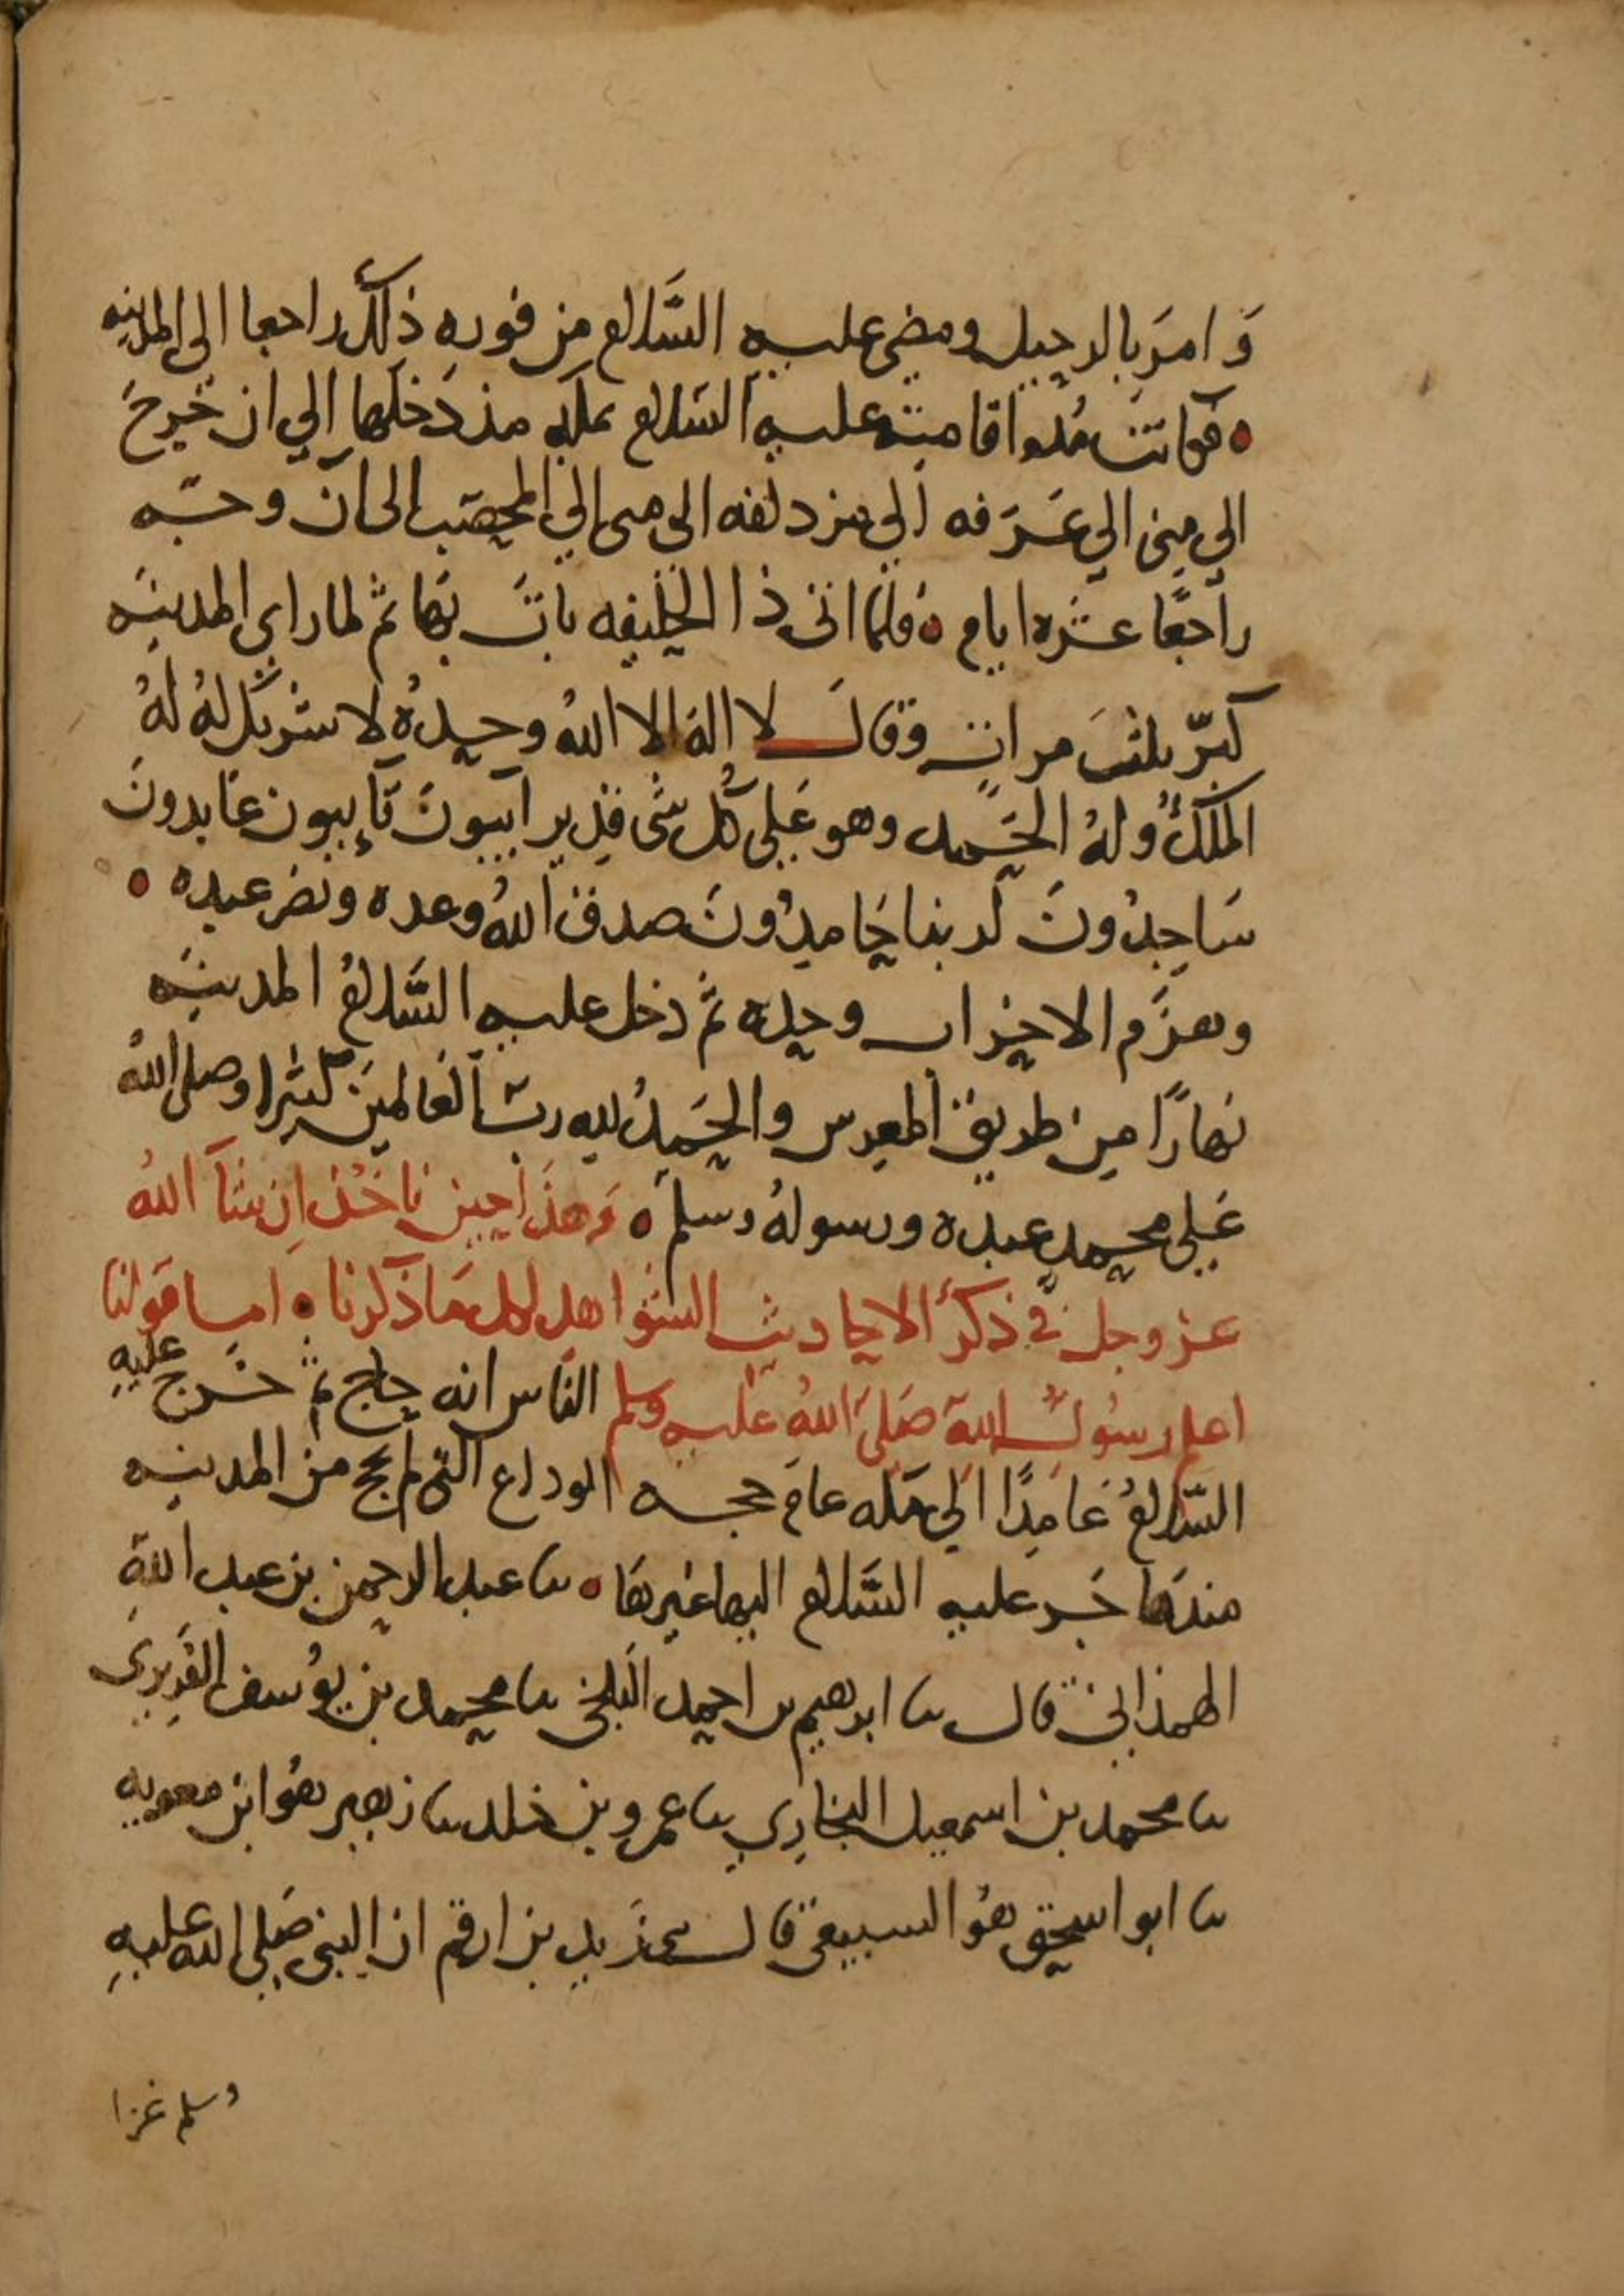 وَامَرَ بالرحيل ومضى عليه السَّلام من فوره ذلك راجعا الى المدينه
ه فكانت مُدة اقامته عليه السَلام بمكه مذ دَخلها الي ان خَرجَ
الي مِنى الي عَرَفه الي مزدلفه الى منى الي المحصَّب الى ان وجّه
راجعًا عشره ايام ه فلمّا اتى ذا الحليفه باتَ بها ثم لما راى المدينَه
كبّر ثلثَ مراتٍ وقالَ لا إلهَ الا اللهُ وحدهُ لا شريك لهُ لهُ
الملكُ ولهُ الحَمد وهو عَلى كُل شى قدير آيبونَ تَايبون عَابدونَ
سَاجدُونَ لربنا حَامدُونَ صدق اللهُ وعده ونصَر عبده ه
وهزَم الاحزاب وحده ثم دَخل عليه السَّلامُ المدينَه
نهارًا من طريق المعرس والحَمدُ لله ربّ العَالمين كثيرا وصلى اللهُ
عَلى محمدٍ عبده ورسولهُ وسلم ه وَهذا حين ناخُذ اِن شآ اللهُ
عز وجل في ذكرُ الاحاديث الشواهد لكل مَا ذكرنا ه امـا قَولنا
اعلم رسُولُ اللهِ صَلى اللهُ عَليه وسلم الناس انه حاج ثم خَرج عليهِ
السَّلامُ عَامِدًا الي مَكه عامَ حجه الوداع التي لم يحج من المدينه
منذ هَاجَر عليه السَّلام اليها غيرهَا ه ثنا عبد الرحمن بن عبد اللهِ
الهمذاني قال ثنا ابرهيم بن احمد البَلخى ثنا محمد بن يوُسف الفَرِبرى
ثنا محمد بن اسمعيل البخاري ثنا عمرو بن خلد ثنا زهير هوُ ابن معويه
ثنا ابو اسحق هوُ السبيعى قال ثنى زَيد بن ارقم ان النبى صَلى الله عليهِ
وسلم غزا